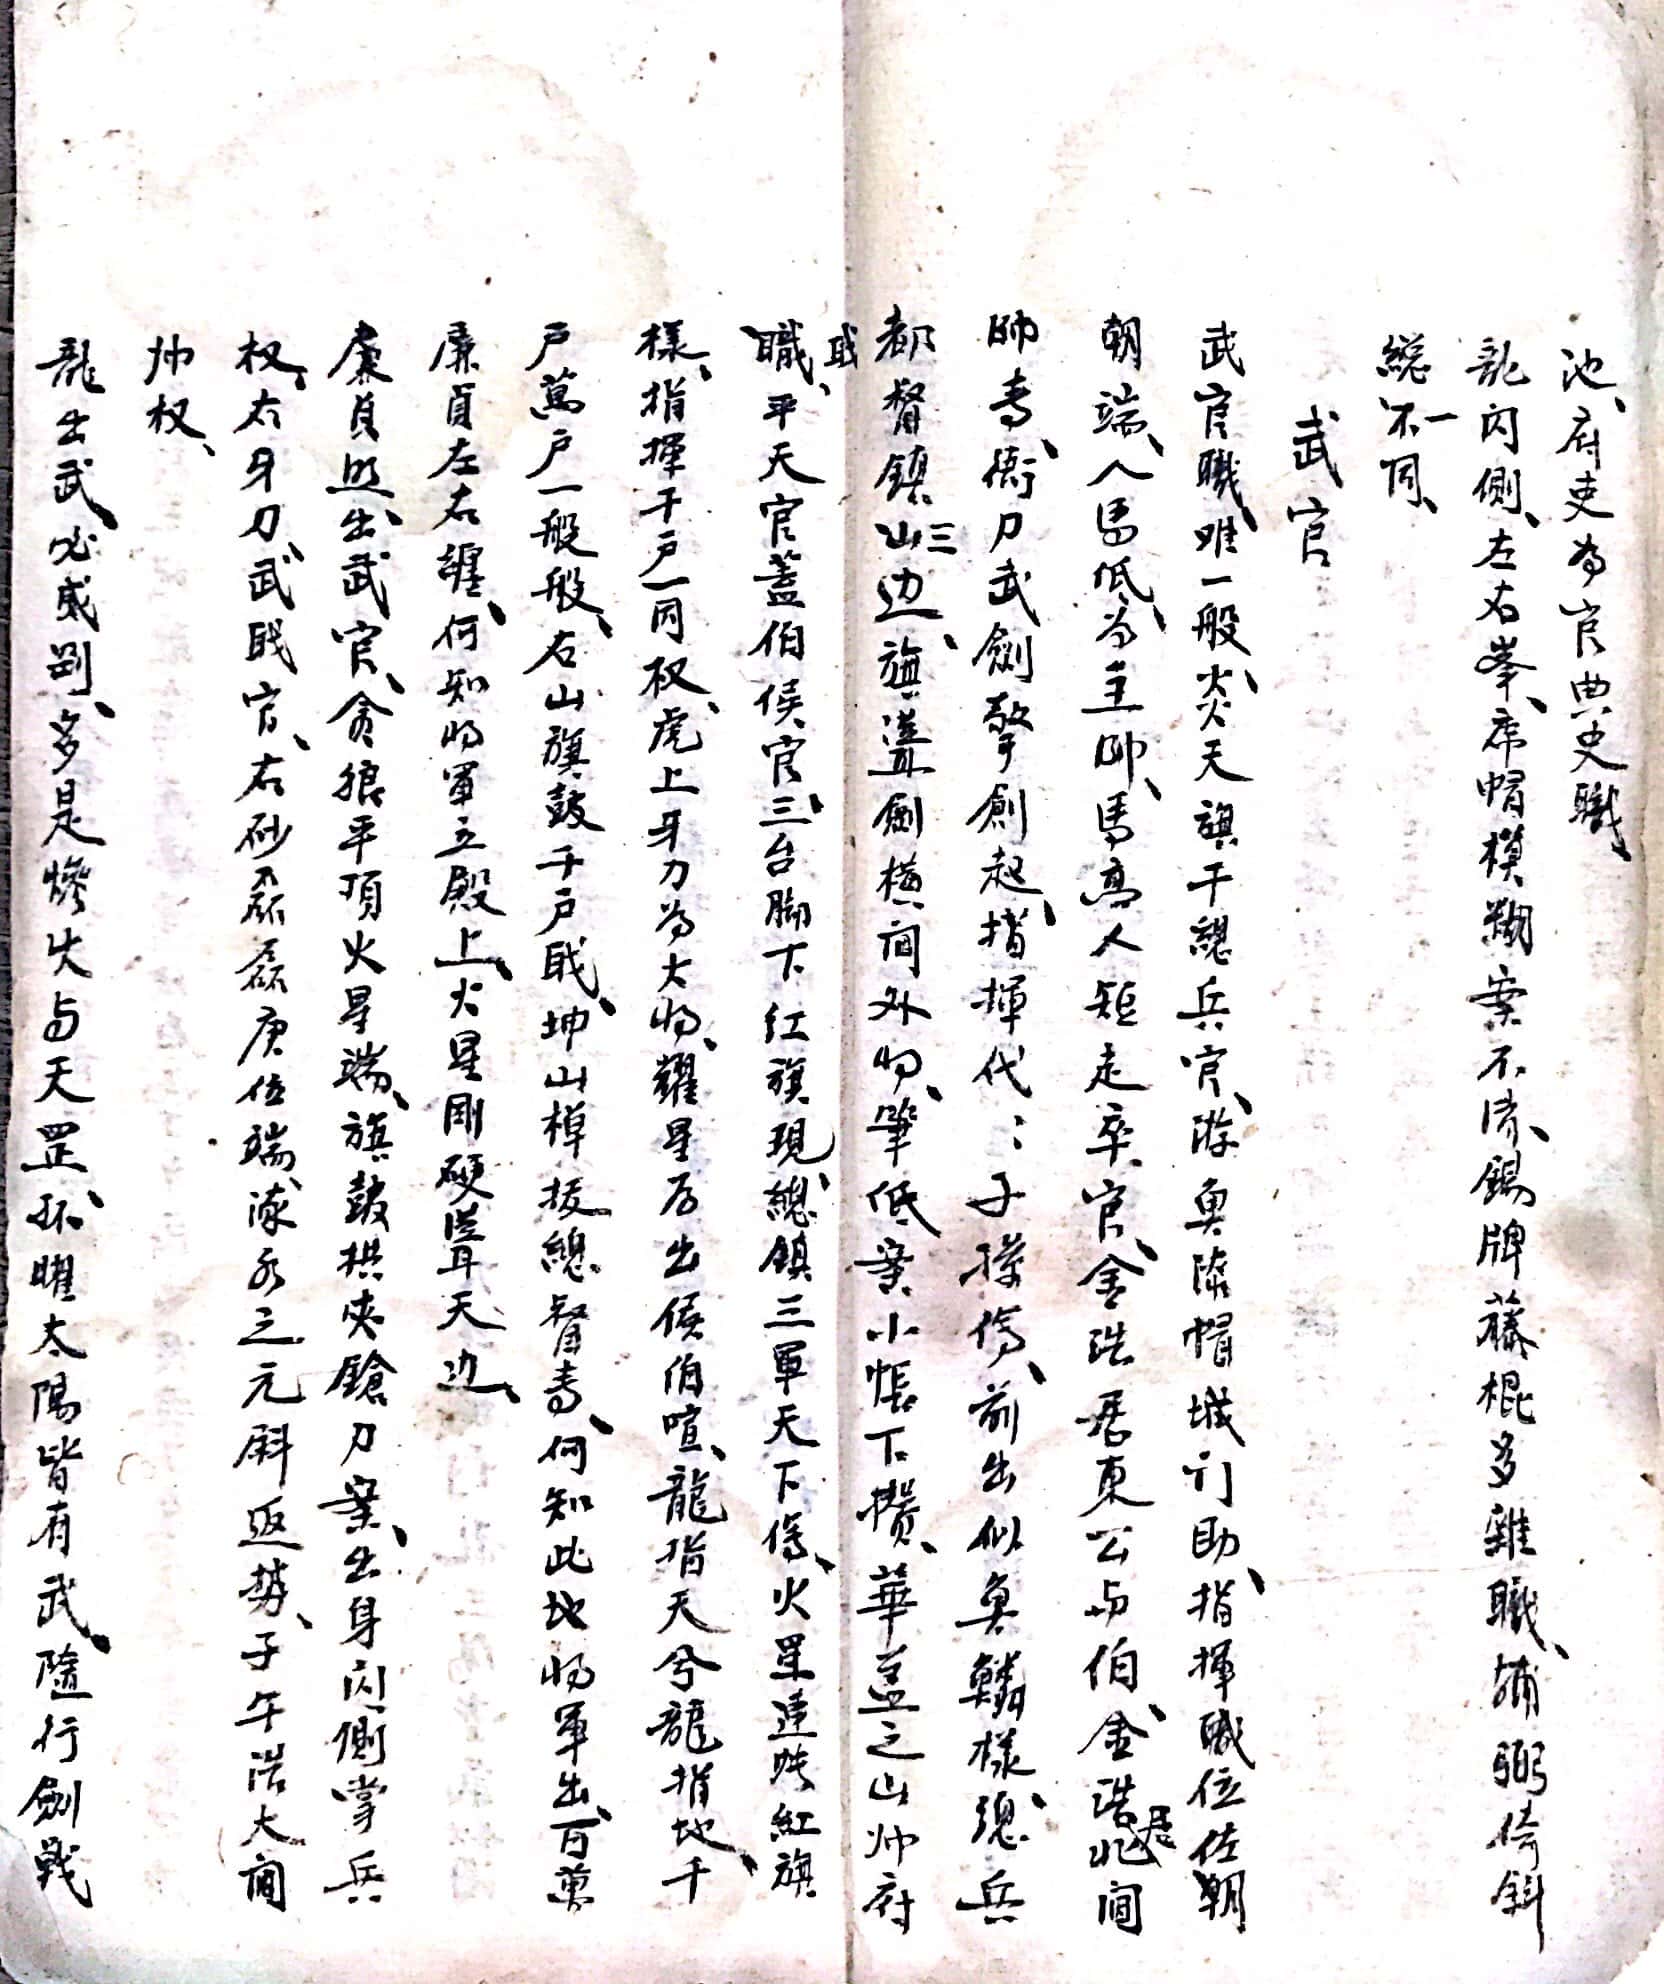 池、府吏為官典史職、
龍閃側、左右峯、席帽模糊案不清、錫牌藤棍多雜職、補弼倚斜
總不一同、
武官
武官職、难一般、炎天旗干總兵官、游魚落帽城門助、指揮職位佐朝
朝端、人馬低、為主帥、馬高人短走卒官、金浩居東公与伯、金浩居北閫
帥寿、衙刀武劍擎劍起、指揮代代子孫傳、前出似魚鱗樣、總兵
都督鎮三山边、旗邊劍橫閫外将、筆低案小帳下攢、華蓋之山帅府
職、平天官蓋伯侯官、三台脚下紅旗現、總鎮三軍天下傳、火星連珠紅旗
樣、指揮千戶一同权、虎上牙刀為大将、耀星居出侯伯喧、龍指天兮龍指地、千
戶萬戶一般般、右山旗鼓千戶戝、坤山棹板總督寿、何知此地将軍出、百萬
廉貞左右纏、何知将軍立殿上、火星剛硬聳天边、
廉貞照出武官、貪狼平頂火星端、旗鼓拱夾鎗刀案、出身閃側掌兵
权、太牙刀、武戝官、右砂磊磊庚位端、添水之元斜返势、子午浩大閫
帅权、
龍出武、必威剛、多是燥火与天罡、孤曜太陽皆有武、隨行劍戟